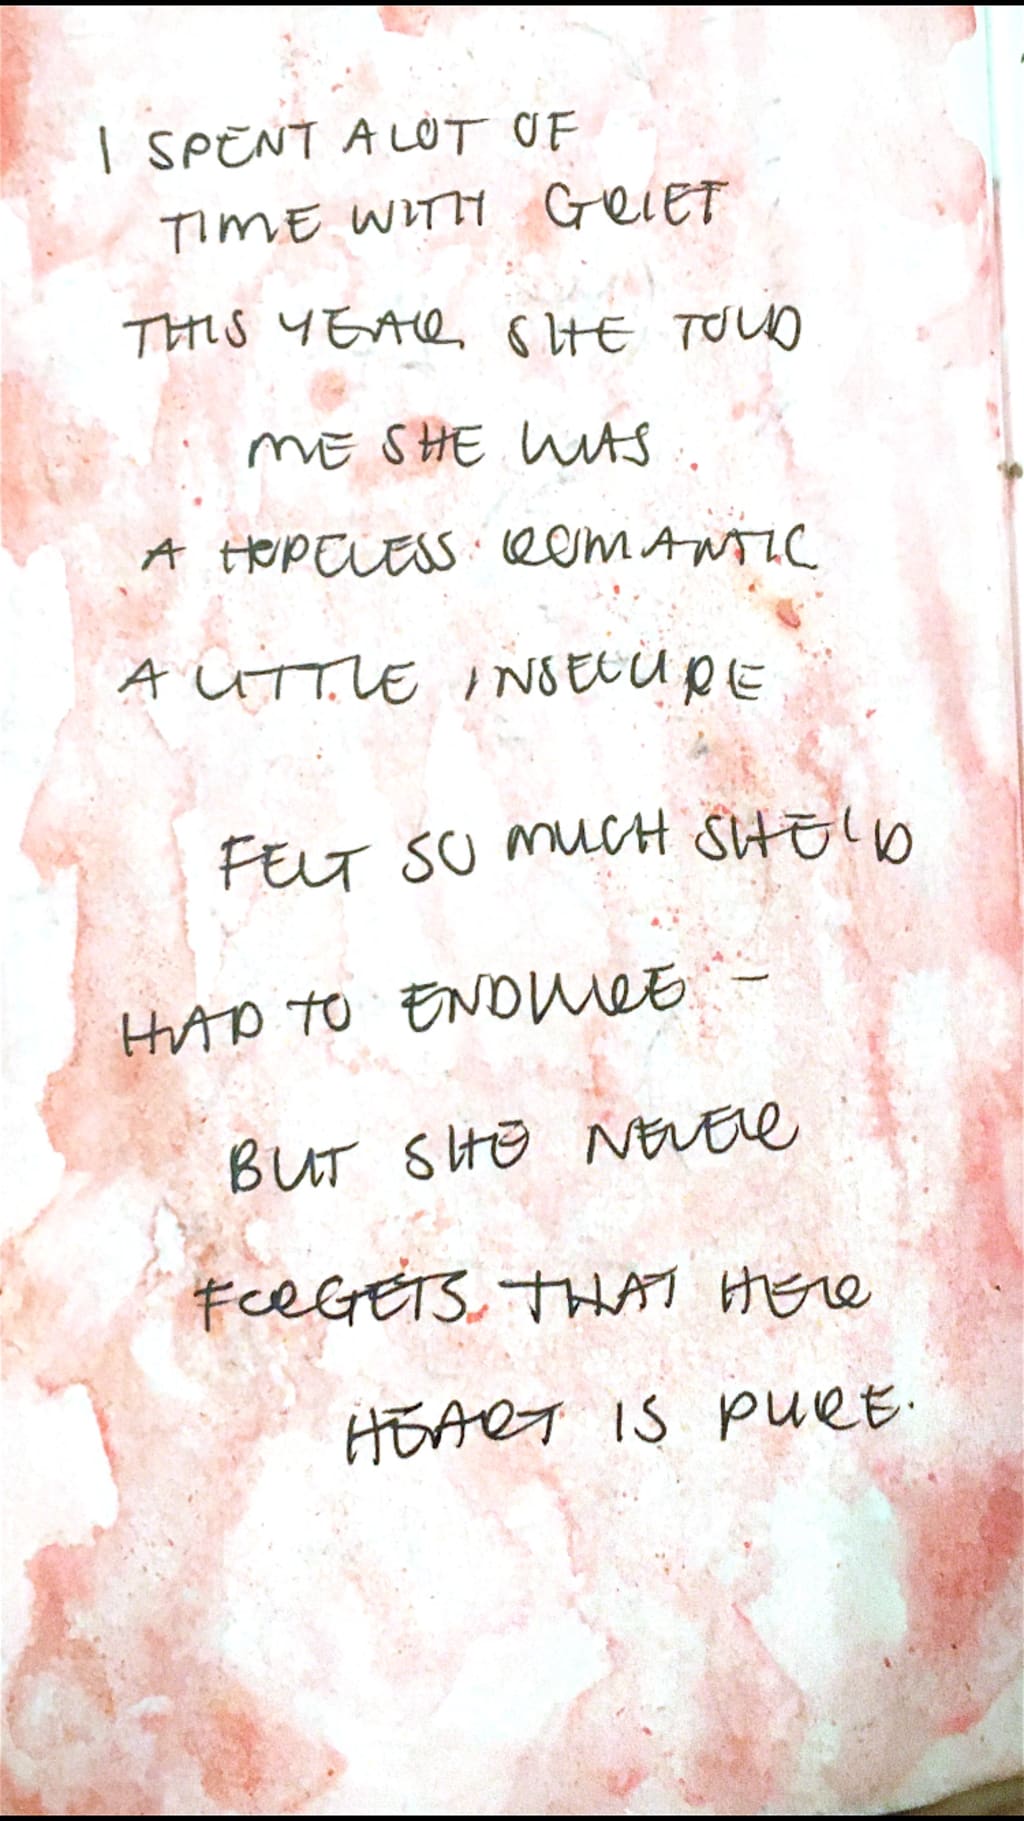 I SPENT A LOT OF
TIME WITH GRIEF
THIS YEAR. SHE TOLD
ME SHE WAS
A HOPELESS ROMANTIC
A LITTLE INSECURE
FELT SO MUCH SHE'D
HAD TO ENDURE -
BUT SHE NEVER
FORGETS THAT HER
HEART IS PURE.